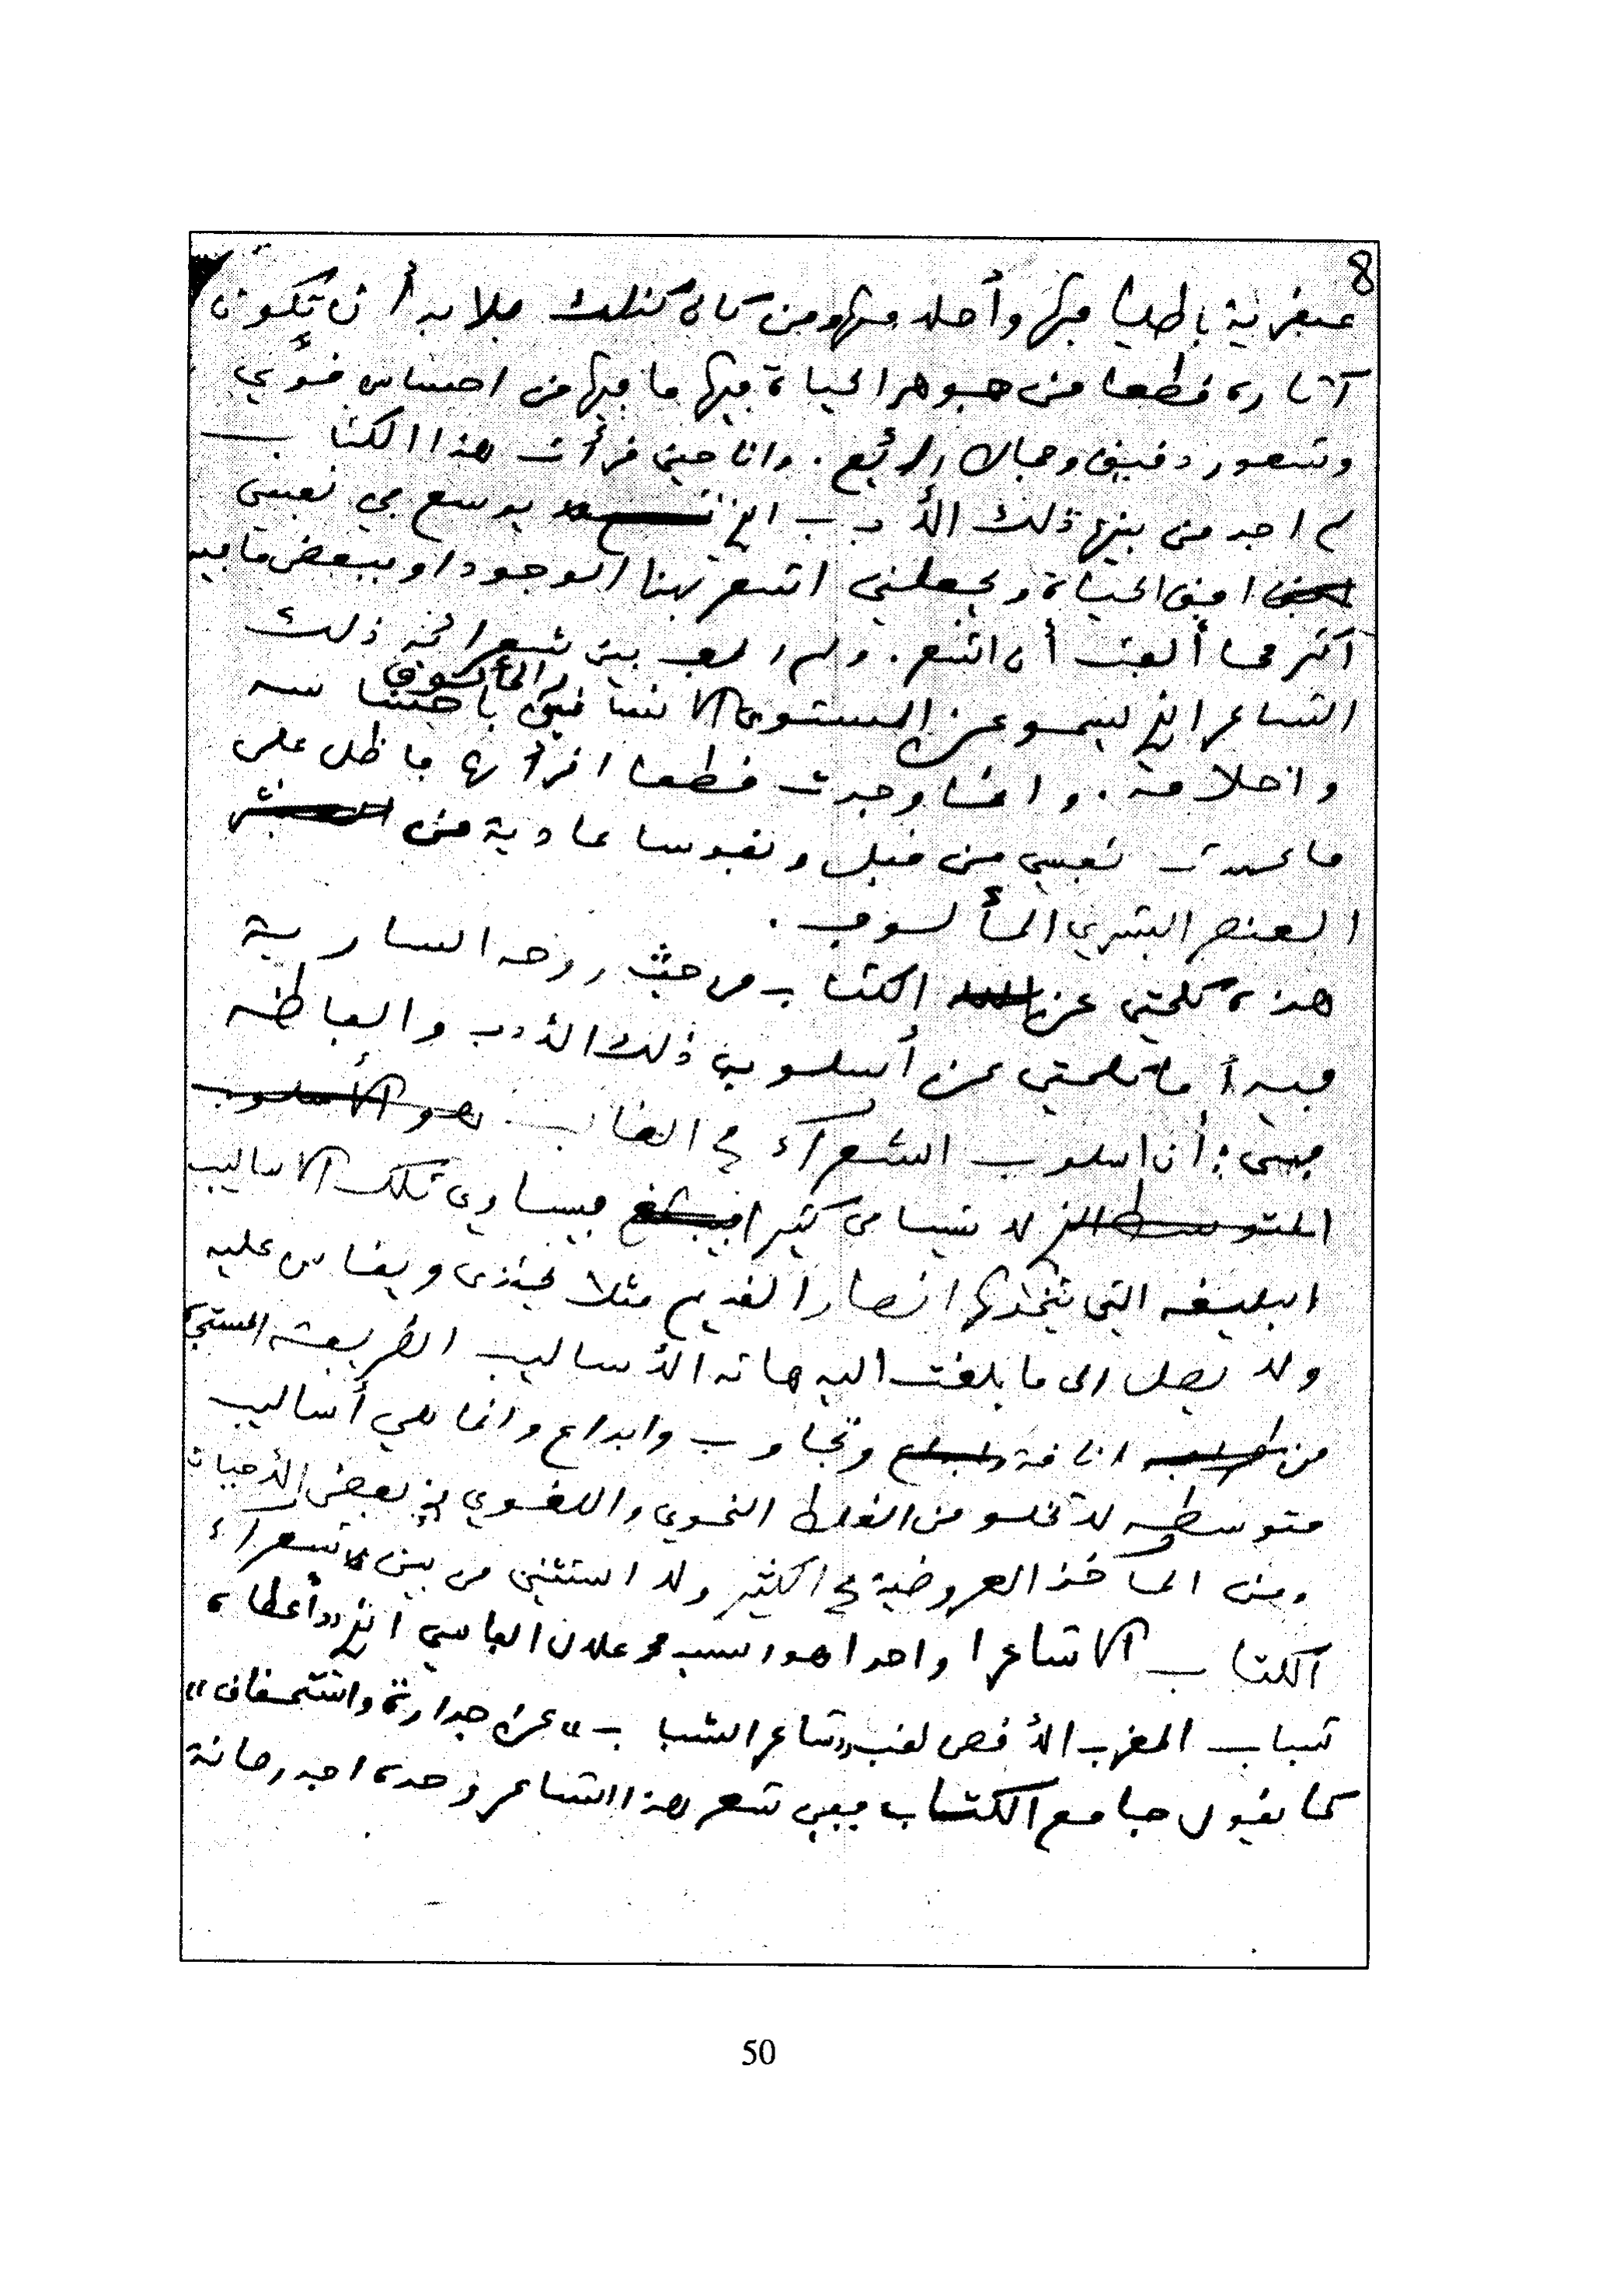 8
عبقرية بأطيافها وأحلامها ومن كان كذلك فلا بد أن تكون
آثاره قطعا من جوهر الحياة فيها ما فيها من احساس قوي
وشعور دقيق وجمال رائع. وانا حين قرأت هذا الكتاب
لم اجد من بينه ذلك الأدب الذي يوسع في نفسي
افق الحياة ويجعلني اشعر بهذا الوجود او ببعض ما فيه
اكثر مما ألفت أن اشعر. ولم الف بين شعرائه ذلك
الشاعر الذي يسمو عن المستوى الانساني المألوف باحساسه
واحلامه. وانما وجدت قطعا اقرأها فأظل على
ما عهدت نفسي من قبل ونفوسا عادية من
العنصر البشري المألوف.
هذه كلمتي عن الكتاب من حيث روحه السارية
فيه أما كلمتي عن أسلوب ذلك الأدب والفاظه
فهي: أن اسلوب الشعراء في الغالب
لا يتسامى كثيرا فيساوي تلك الاساليب
البليغه التي يتخذها انصار القديم مثلا يحتذى ويقاس عليه
ولا يصل الى ما بلغت اليه هاته الأساليب الطريفة
من اناقة وتجاوب وابداع وانما هي أساليب
متوسطه لا تخلو من الغلط النحوي واللغوي في بعض الأحيان
ومن المآخذ العروضية في الكثير ولا استثني من بين شعراء
الكتاب الا شاعرا واحدا هو السيد محمد علال الفاسي الذي «أعطاه
شباب المغرب الأقصى لقب «شاعر الشباب» عن جدارة واستحقاق»
كما يقول جامع الكتاب ففي شعر هذا الشاعر وحده اجد رصانة
50